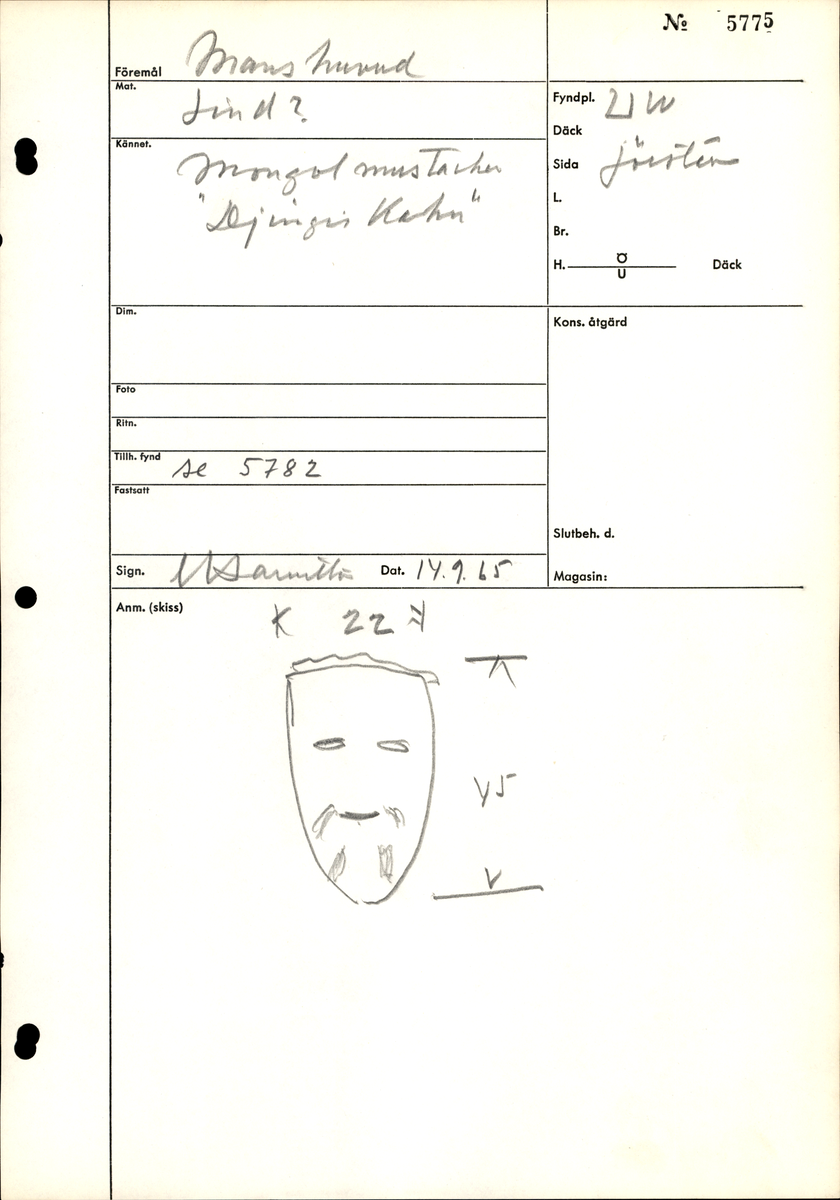 № 5775
Föremål Manshuvud
Mat. Lind?
Fyndpl. UW
Däck
Sida
L.
Br.
H. Ö U Däck
Kännet. Mongolmustacher
"Djingis Kahn"
Dim.
Kons. åtgärd
Foto
Ritn.
Tillh. fynd se 5782
Fastsatt
Slutbeh. d.
Sign. Dat. 14.9.65
Magasin:
Anm. (skiss)
22
45